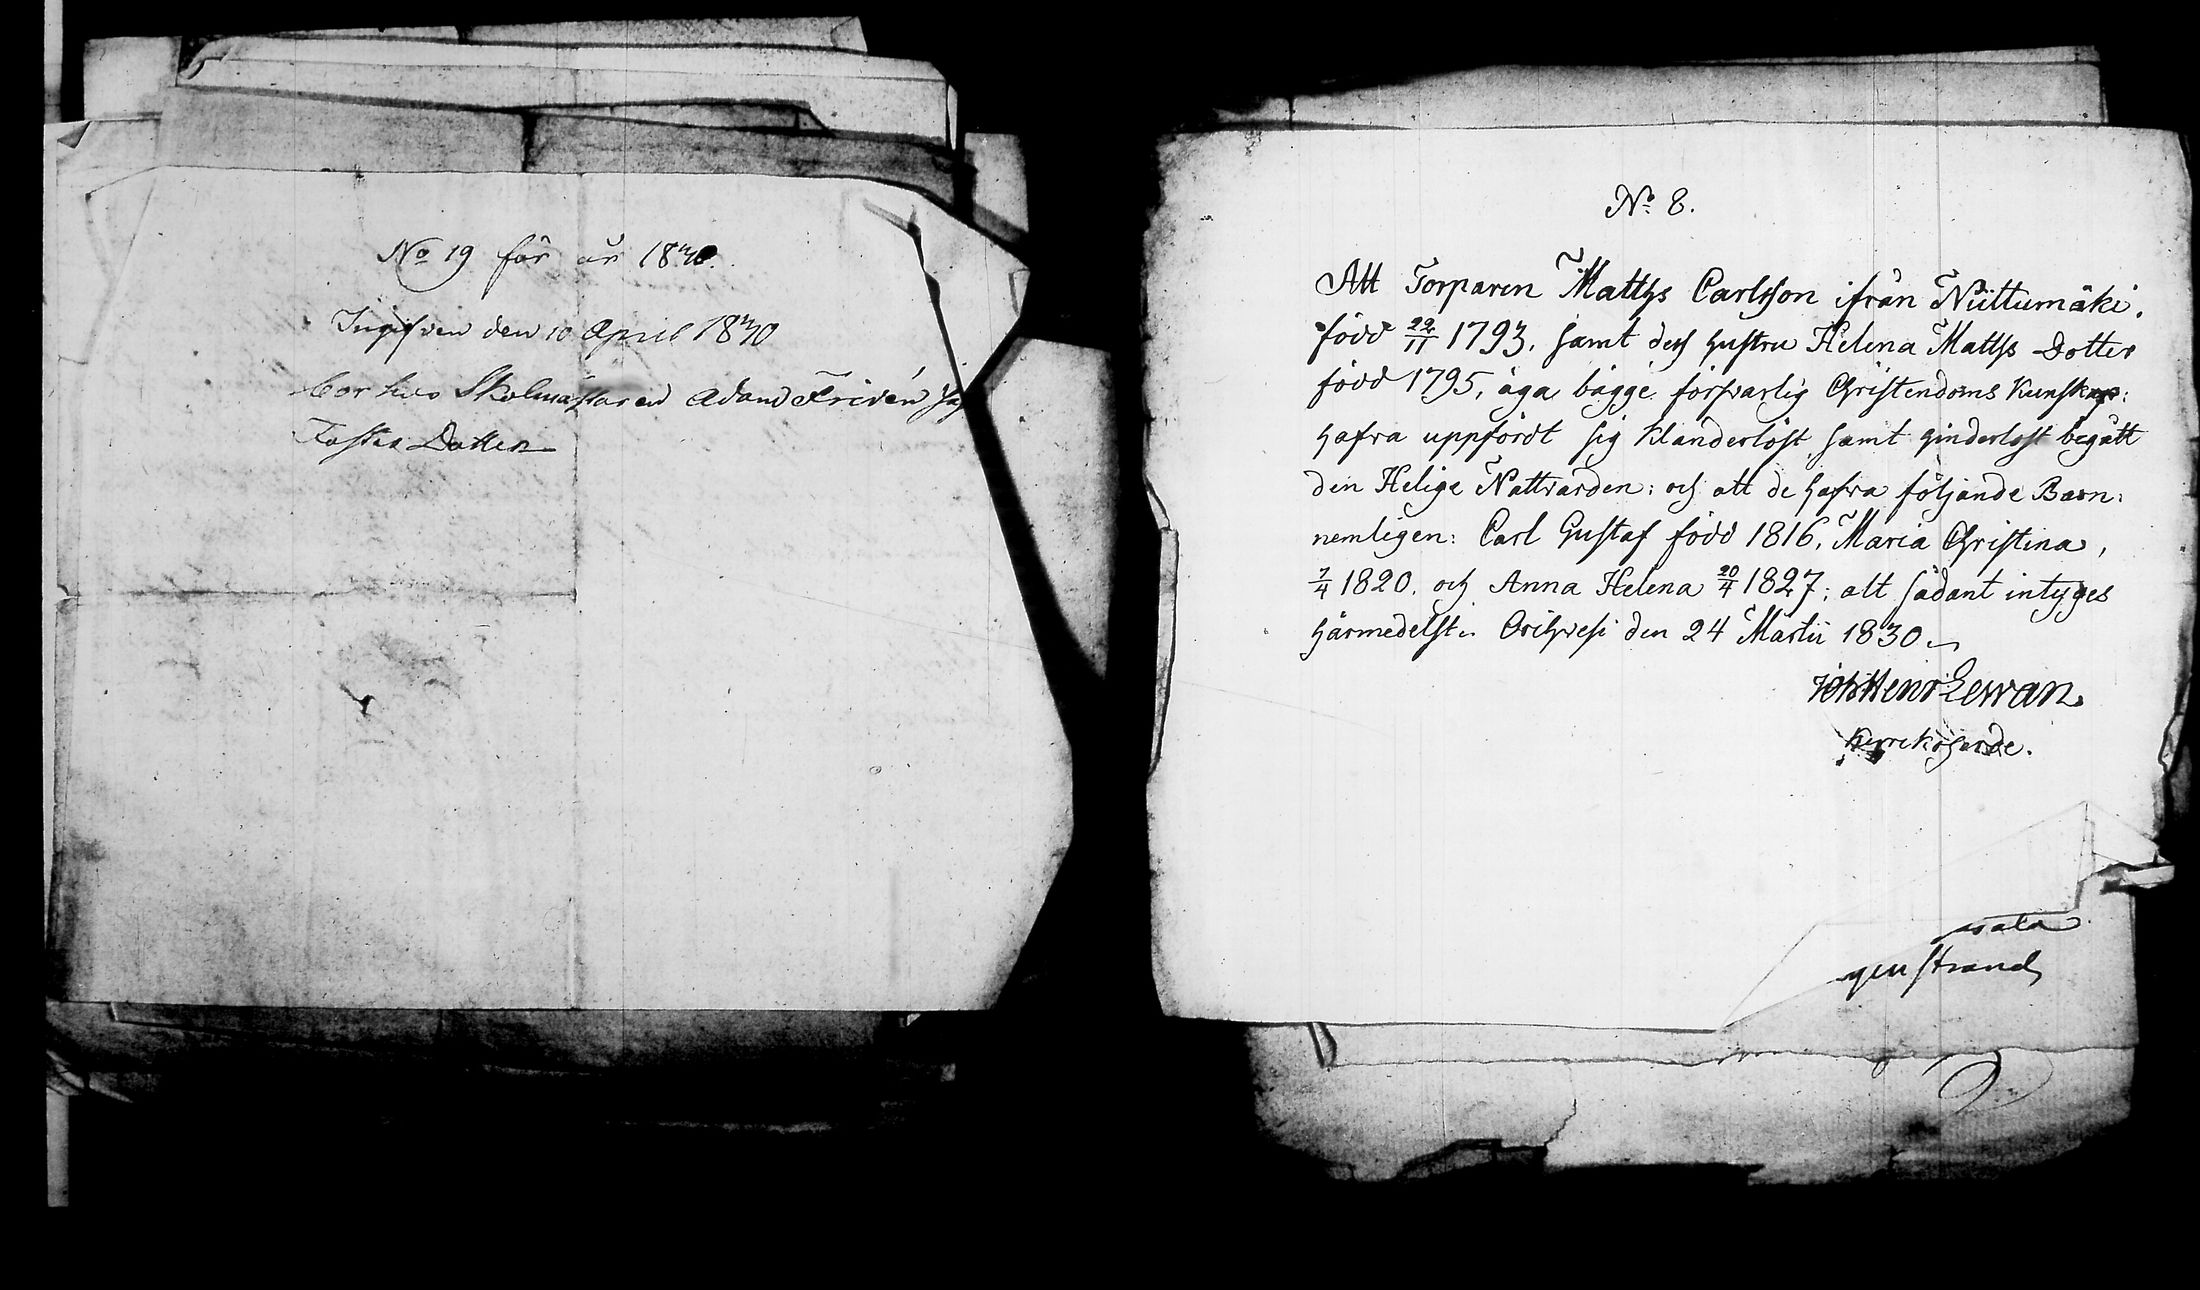 No 19 för år 1830.
Ingifven den 10 April 1830
bor hos Skolmästaren Adam Fridén
Faster Dotter
No 8.
Att Torparen Matths Carlsson ifrån Niittumäki,
född 22/11 1793, samt dess hustru Helena Matths Dotter
född 1795, äga bägge försvarlig Christendoms kunskap:
hafva uppfördt sig klanderlöst samt hinderlöst begått
den Helige Nattvarden: och att de hafva följande Barn:
nemligen: Carl Gustaf född 1816, Maria Christina,
7/4 1820. och Anna Helena 20/4 1827; alt sådant intyges
härmedelst. Orihvesi den 24 Martii 1830
Joh Henr Lewan
Kyrkoherde.
strand